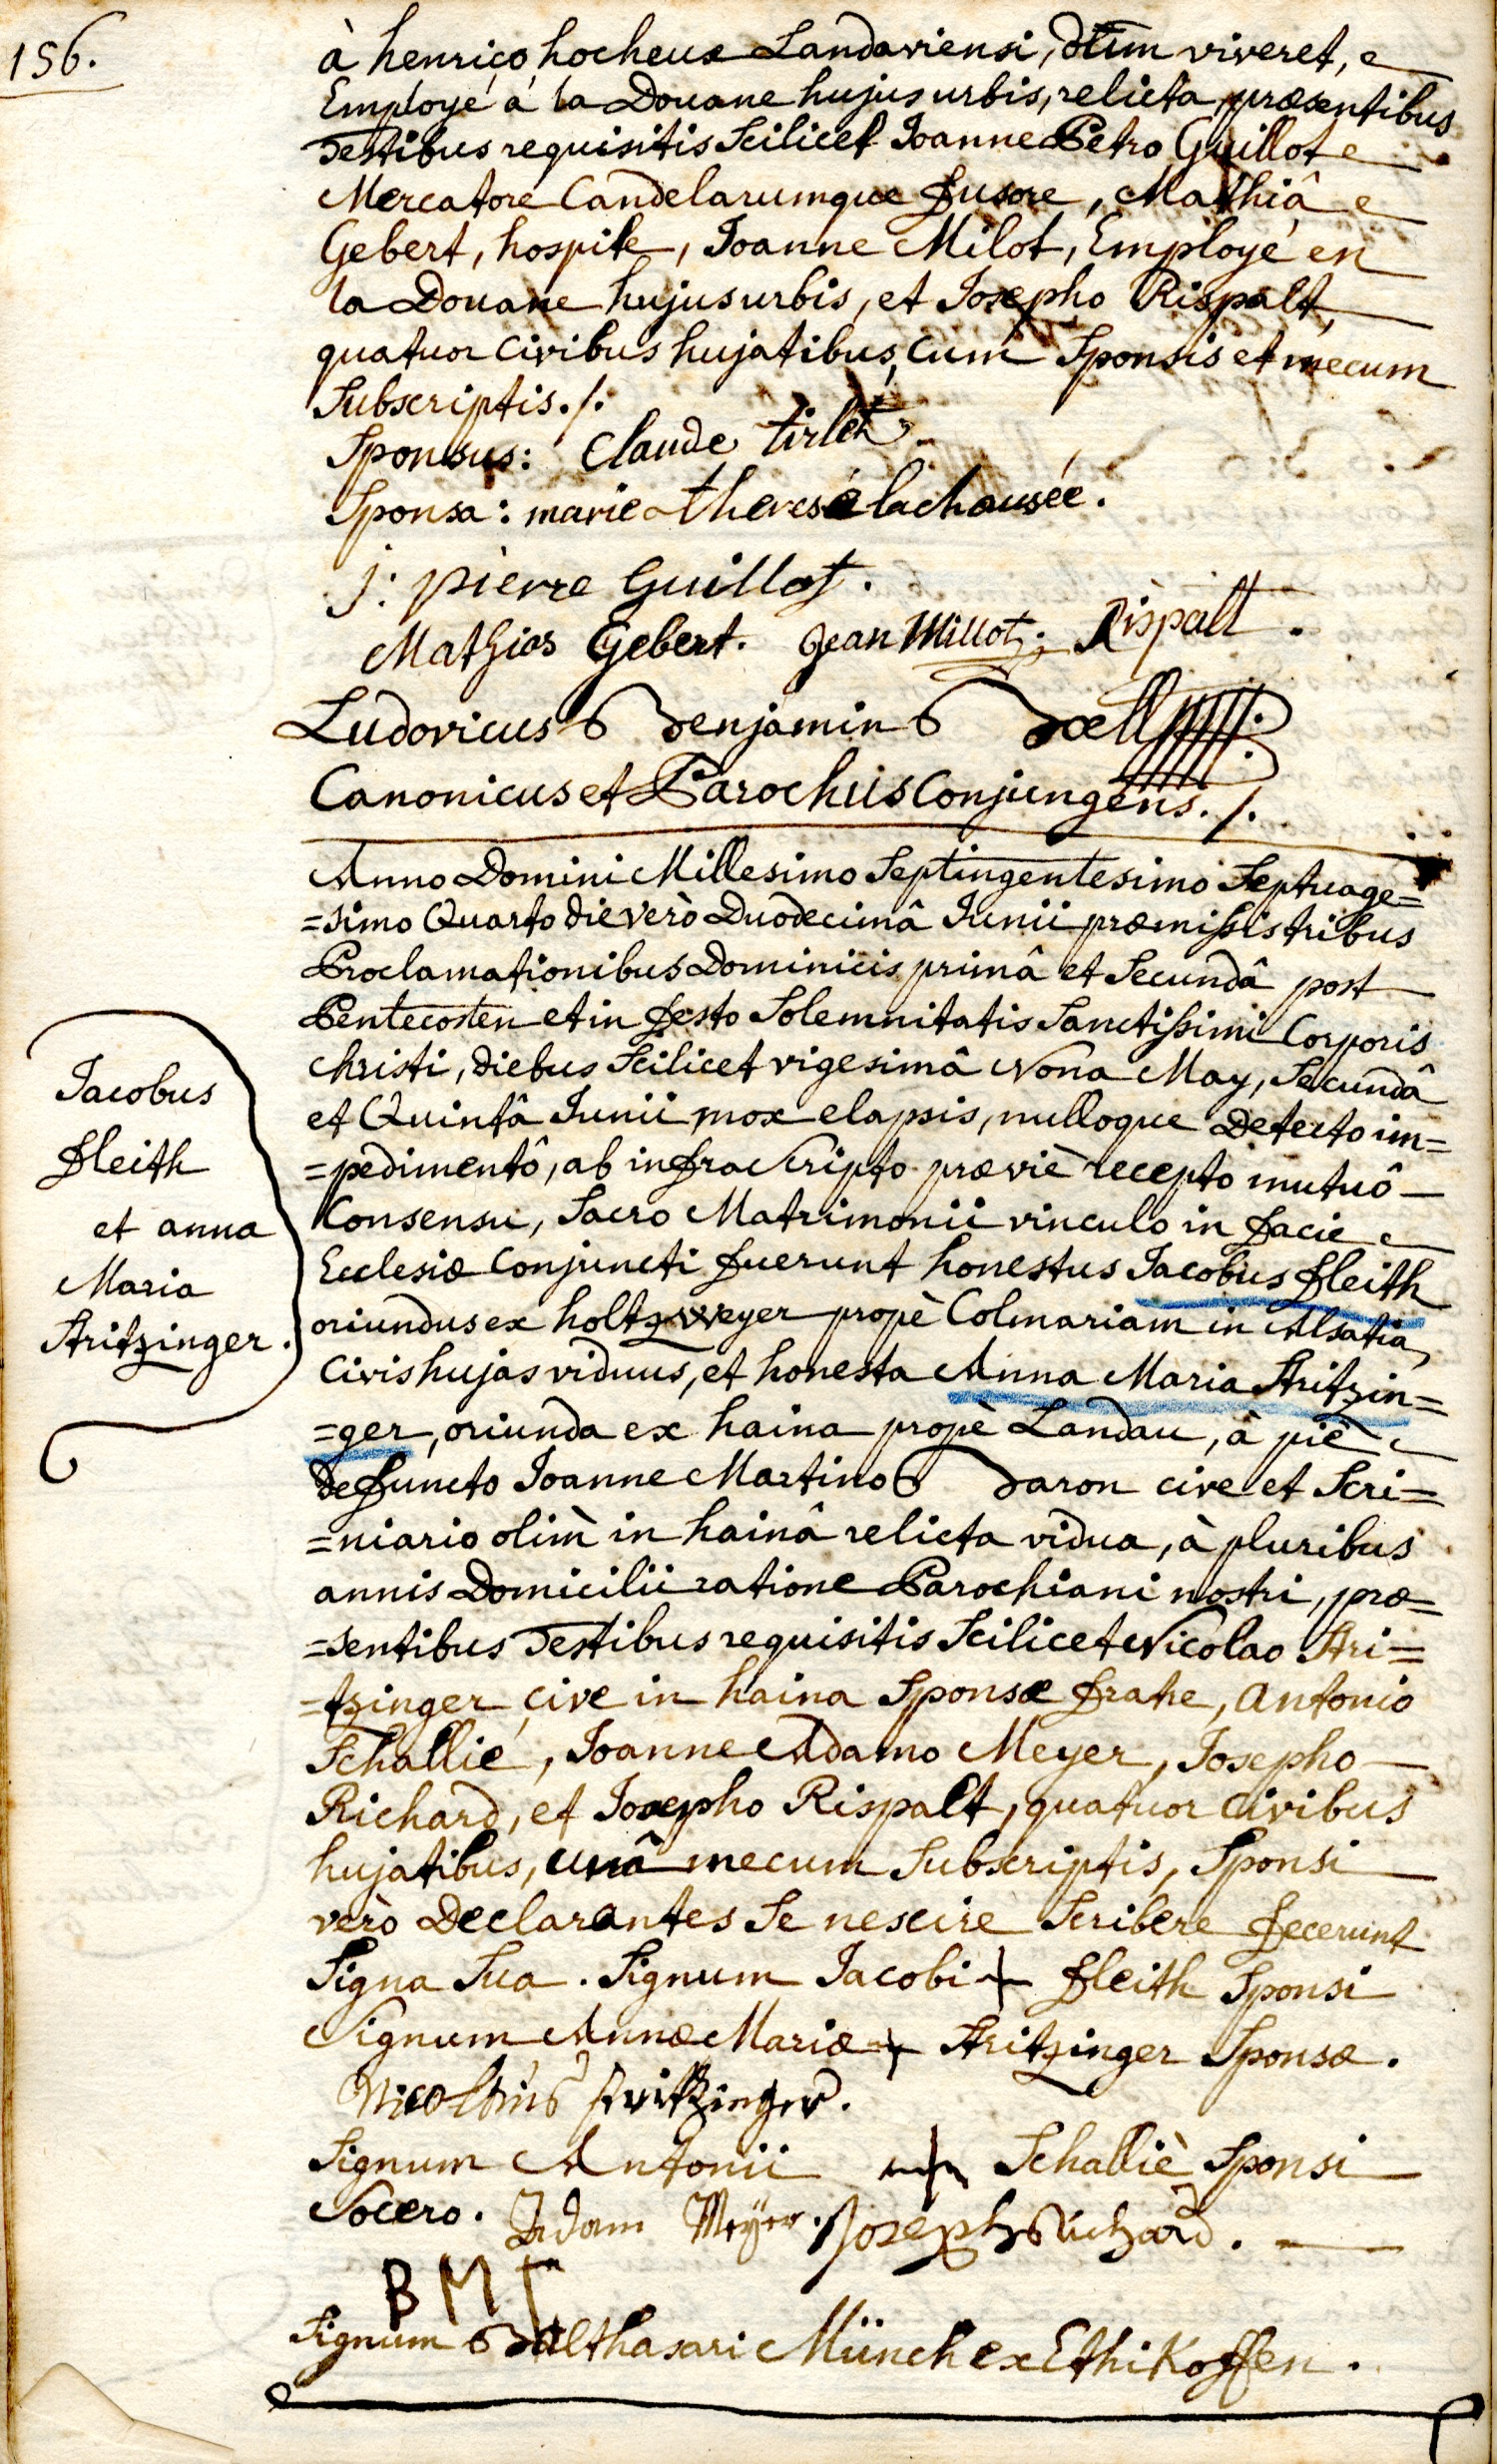 156.
à henrico hocheux Landaviensi, dum viveret,
Employé á la Douane hujus urbis, relicta, præsentibus
Testibus requisitis Scilicet Joanne Petro Guillot
Mercatore Candelarumque fusore, Mathiâ
Gebert, hospite, Joanne Milot, Employé en
la Douane hujus urbis, et Josepho Rispalt,
quatuor Civibus hujatibus, cum Sponsis et mecum
Subscriptis ./.
Sponsus: Claude tirlet
Sponsa: marie therese lachausée.
j: pierre Guillot.
Mathias Gebert. Jean Millot. Rispalt.
Ludovicus Benjamin Doell
Canonicus et Parochus Conjungens ./.
Anno Domini Millesimo Septingentesimo Septuage=
=simo Quarto die verò Duodecimâ Junii præmissis tribus
Proclamationibus Dominicis primâ et Secundâ post
Pentecosten et in festo Solemnitatis Sanctissimi Corporis
Christi, diebus Scilicet vigesimâ Nona May, Secundâ
et Quintâ Junii mox elapsis, nulloque Detecto im=
=pedimentô, ab infrascripto præviè recepto mutuô
Consensu, Sacro Matrimonii vinculo in facie
Ecclesiæ Conjuncti fuerunt honestus Jacobus fleith
oriundus ex holtzweyer propè Colmariam in Alsatia,
Civis hujas viduus, et honesta Anna Maria Stritzin=
=ger, oriunda ex haina propè Landau, à piè
defuncto Joanne Martino Baron cive et Scri=
=niario olim in hainâ relicta vidua, à pluribus
annis Domicilii ratione Parochiani nostri, præ=
=sentibus Testibus requisitis Scilicet Nicolao Stri=
=tzinger cive in haina Sponsæ fratre, Antonio
Schallié, Joanne Adamo Meyer, Josepho
Richard, et Josepho Rispalt, quatuor Civibus
hujatibus, unâ mecum Subscriptis, Sponsi
verò Declarantes Se nescire Scribere fecerunt
Signa Sua. Signum Jacobi + fleith Sponsi
Signum Annæ Mariæ + Stritzinger Sponsæ.
Nicolaus Stritzinger.
Signum Antonii + Schalliè Sponsi
Socero. Adam Meÿer. Joseph Richard.
B M
Signum Balthasari Münch ex Ethikoffen.
Jacobus
fleith
et anna
Maria
Stritzinger.